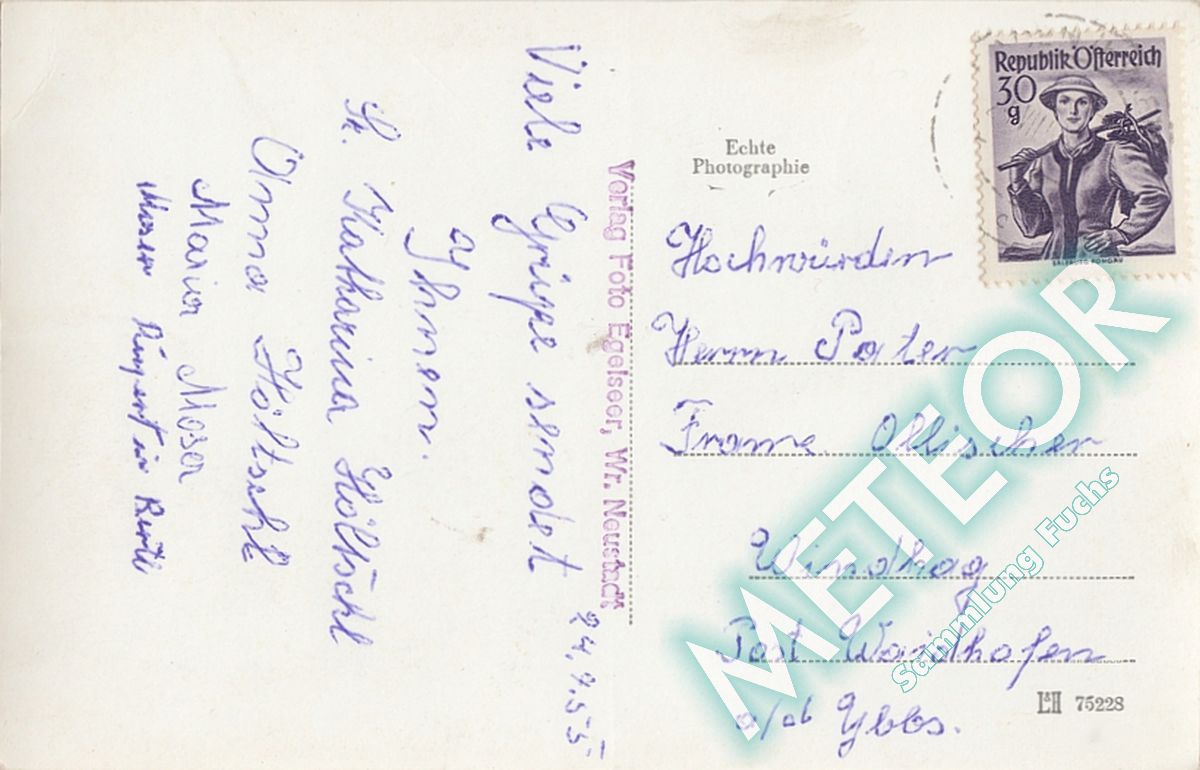 Viele Grüße sendet
Ihnen.
Sr. Katharina Höltschl
Anna Höltschl
Maria Moser
Moser
24.7.55
Verlag Foto Egelseer, Wr. Neustadt
Echte
Photographie
Republik Österreich
30
g
SALZBURG, PONGAU
Hochwürden
Herrn Pater
Franz Ollischer
Windhag
Post Waidhofen
a/d Ybbs.
L&H 75228
METEOR
Sammlung Fuchs